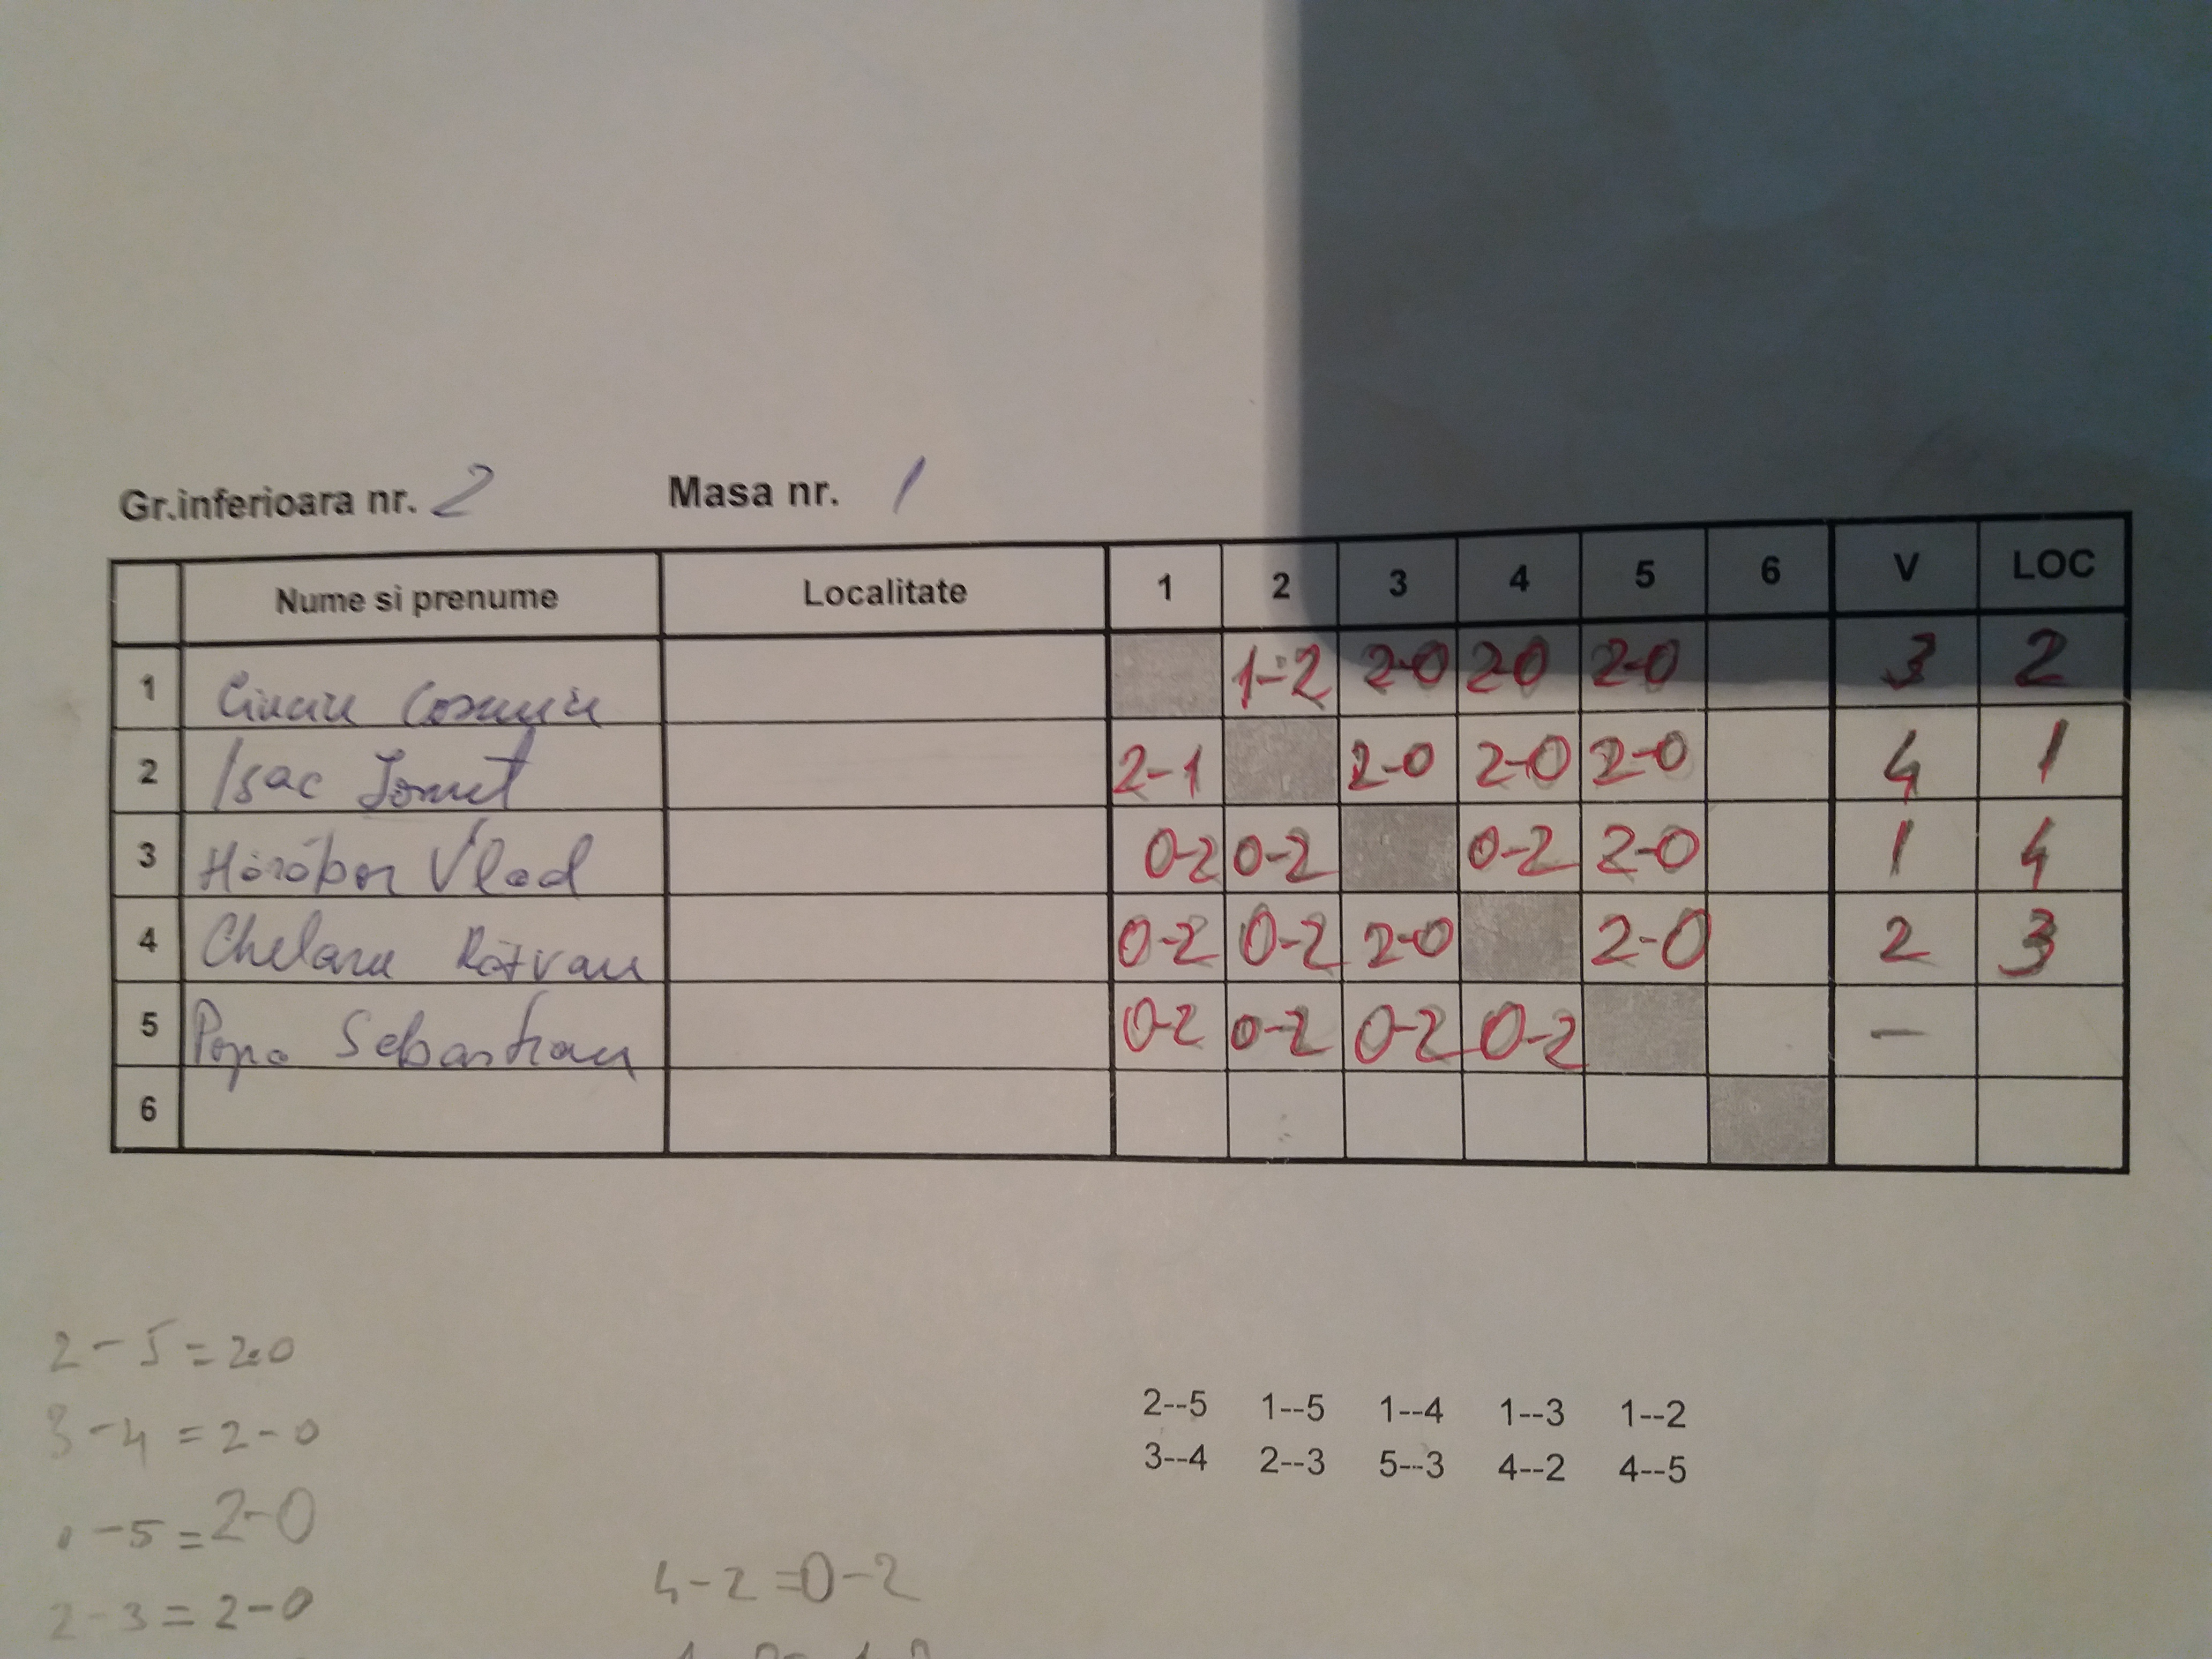 Gr.inferioara nr. 2 Masa nr. 1
Nume si prenume Localitate 1 2 3 4 5 6 V LOC
1 1-2 2-0 2-0 2-0 3 2
2 Isac Ionut 2-1 2-0 2-0 2-0 4 1
3 Vlad 0-2 0-2 0-2 2-0 1 4
4 Chelaru Răzvan 0-2 0-2 2-0 2-0 2 3
5 Popa Sebastian 0-2 0-2 0-2 0-2 —
6
2-5=2-0
3-4=2-0
1-5=2-0
2-3=2-0
4-2=0-2
2--5 1--5 1--4 1--3 1--2
3--4 2--3 5--3 4--2 4--5